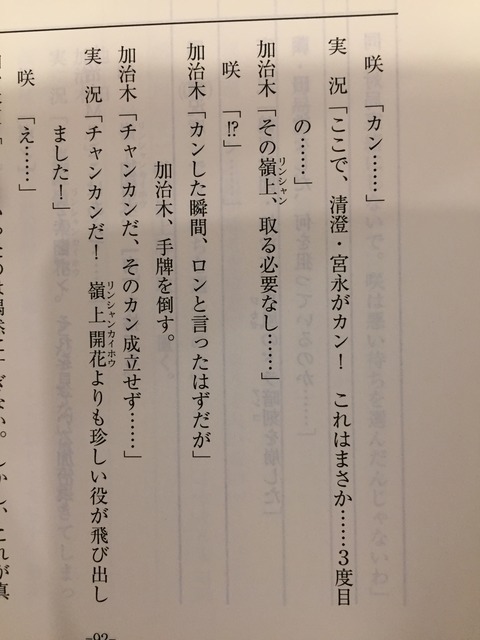 咲 「カン……」
実 況「ここで、清澄・宮永がカン！ これはまさか……３度目
の……」
加治木「その嶺上、取る必要なし……」
リンシャン
咲 「!?」
加治木「カンした瞬間、ロンと言ったはずだが」
加治木、手牌を倒す。
加治木「チャンカンだ、そのカン成立せず……」
実 況「チャンカンだ！ 嶺上開花よりも珍しい役が飛び出し
リンシャンカイホウ
ました！」
咲 「え……」
-92-